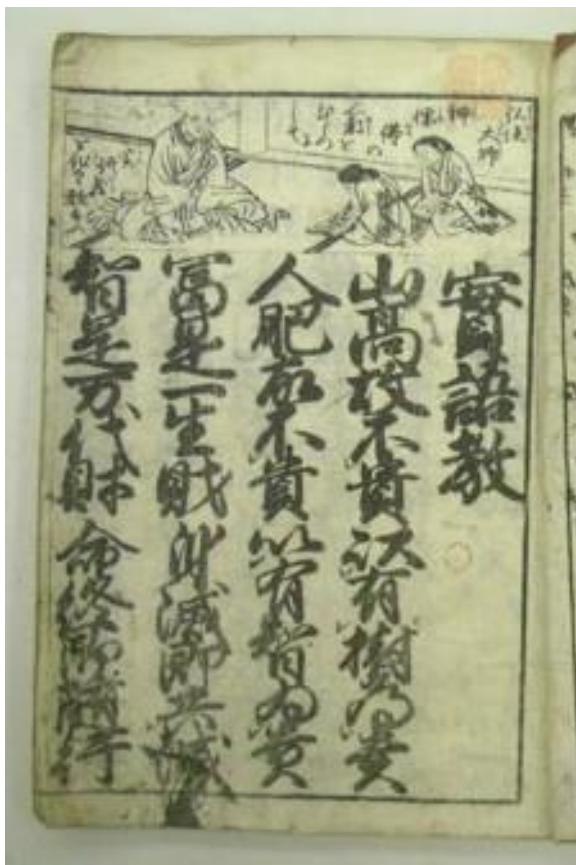 實語教
山高故不貴以有樹為貴
人肥故不貴以有智為貴
冨是一生財身滅即共滅
智是万代財命終即隨行
弘法
大師